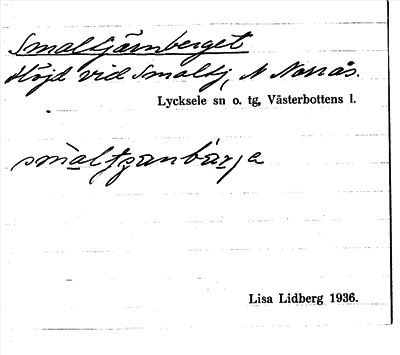 Smaltjärnberget
Höjd vid Smaltj, N Norrås.
Lycksele sn o. tg, Västerbottens l.
Lisa Lidberg 1936.